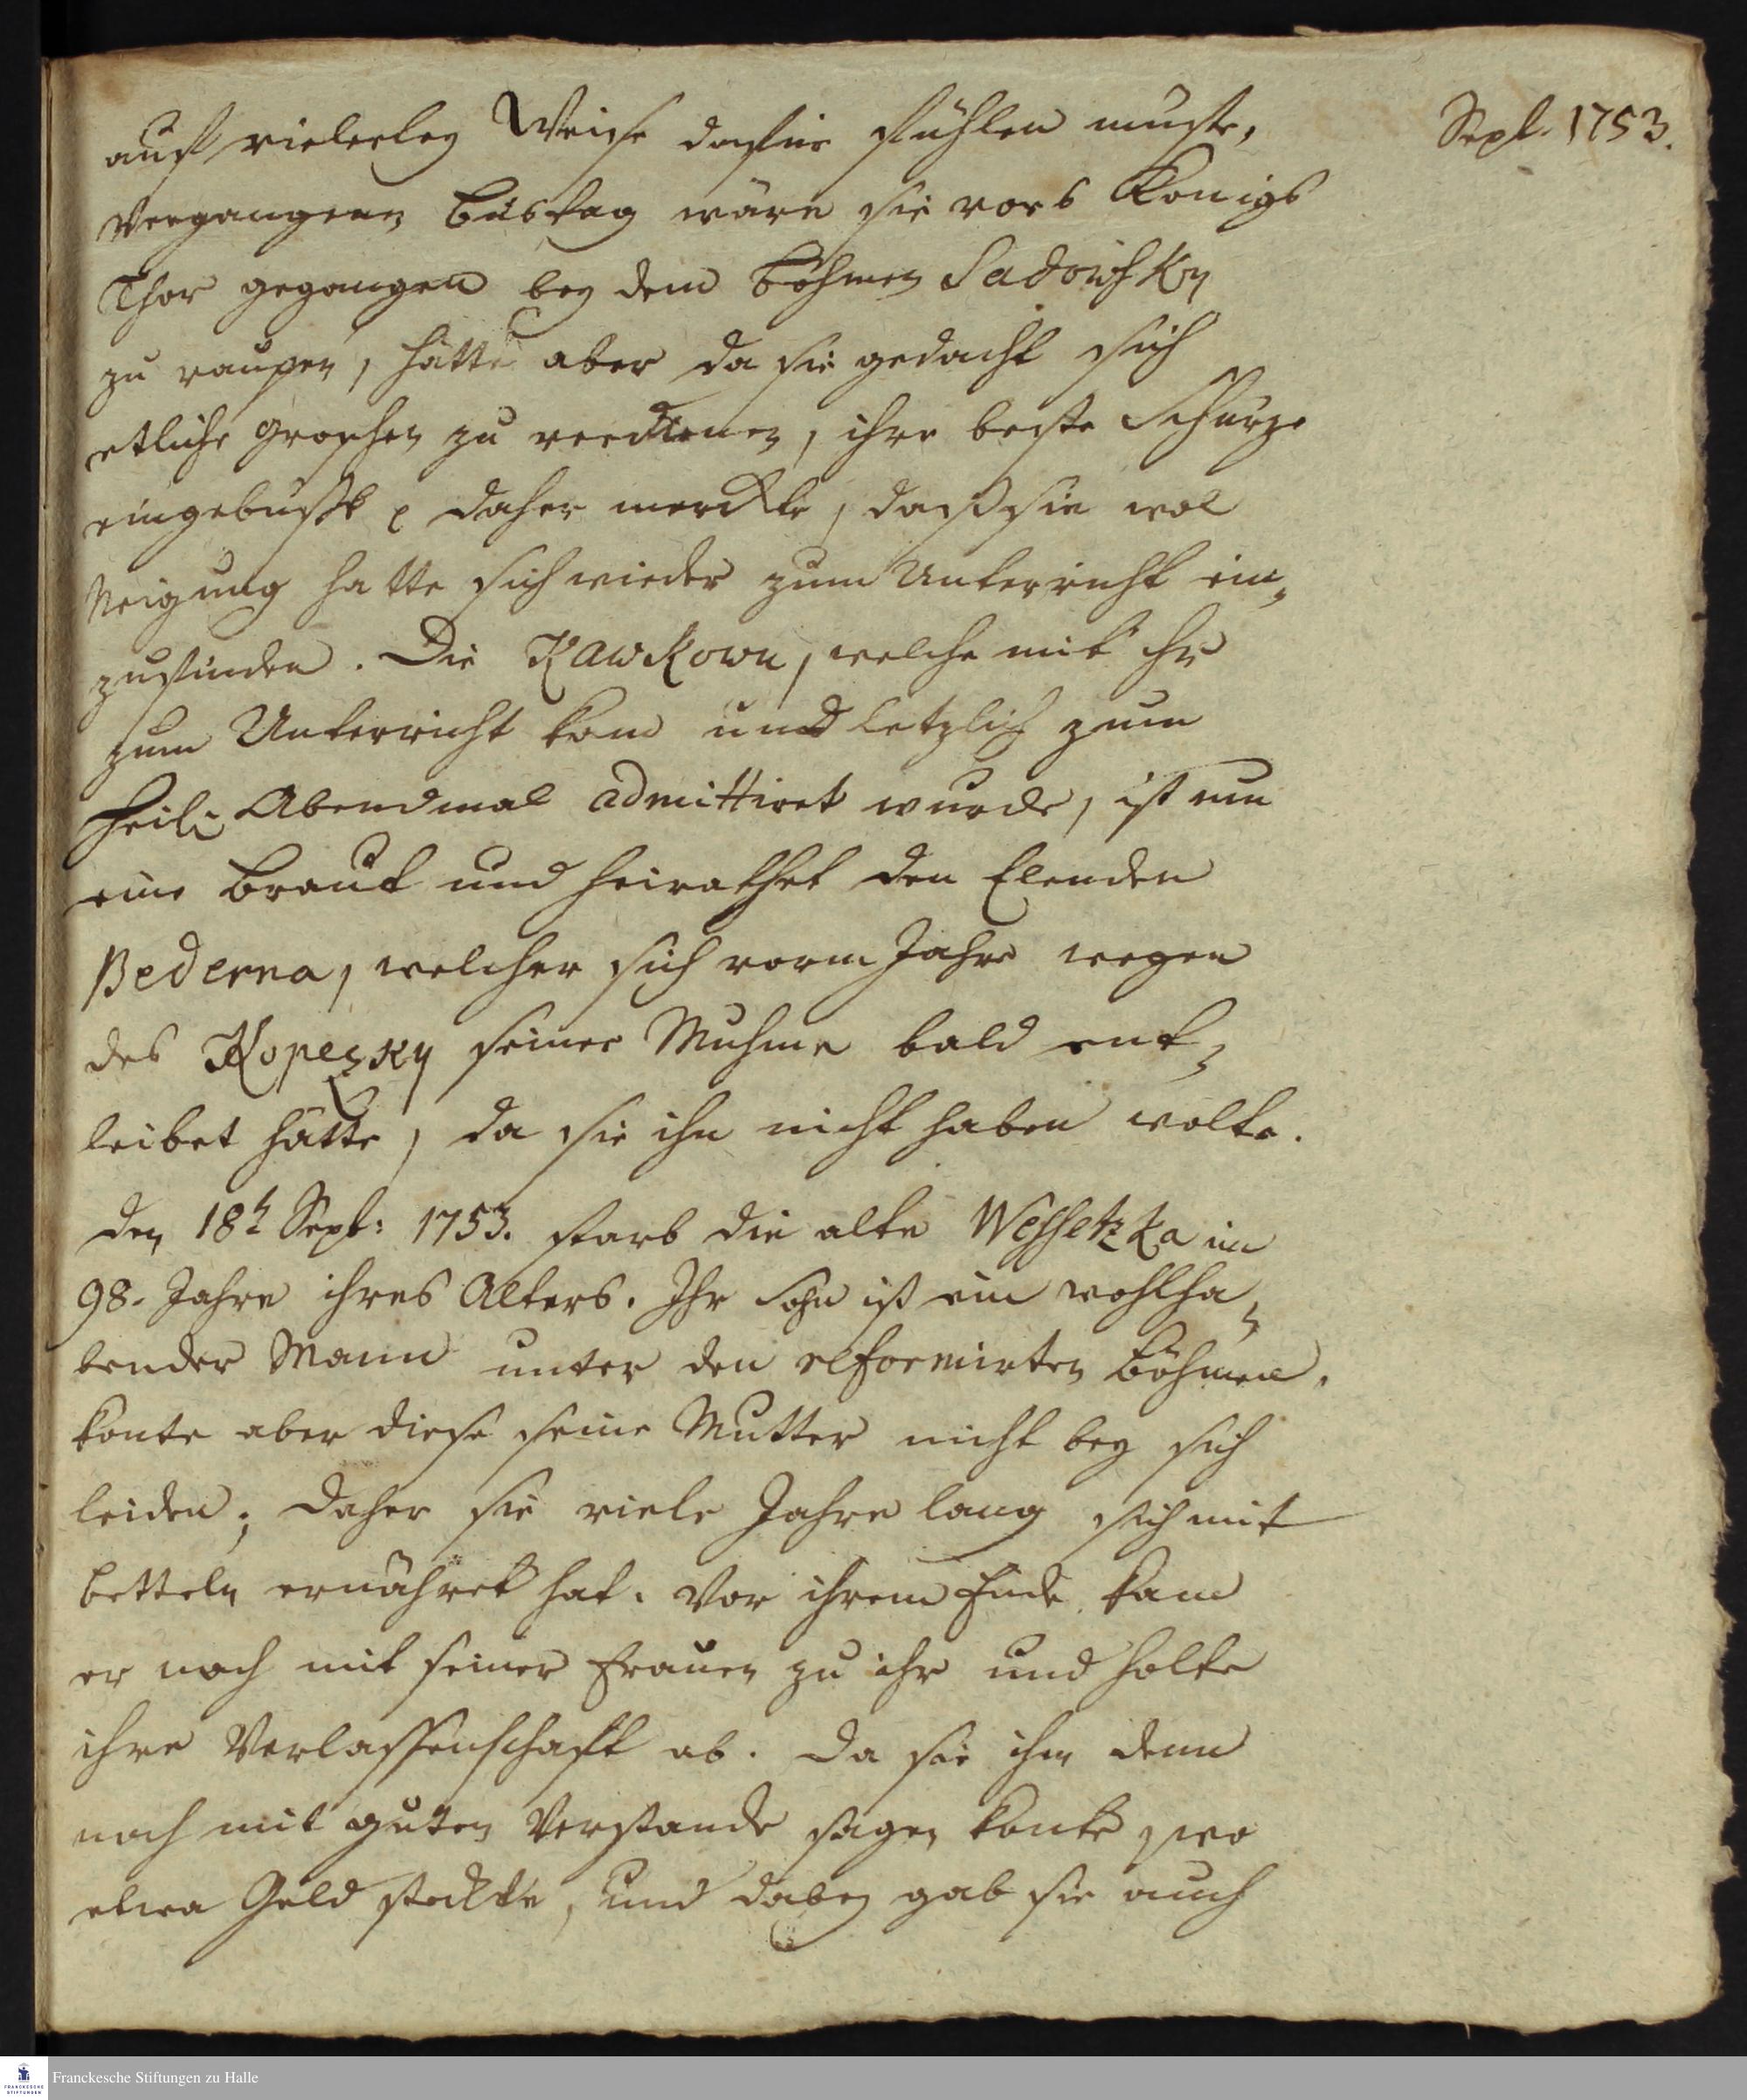 Sept. 1753.
auf vielerley Weise dafür fühlen muste,
vergangenen Bustag wäre sie vors Königs
Thor gegangen bey dem Böhmen Sadowsky
zu raupen, hätte aber da sie gedacht sich
etliche Groschen zu verdienen, ihre beste Schürze
eingebüsst daher merckte, daß sie wol
Neigung hatte sich wieder zum Unterricht ein-
zufinden. Die Kawkown, welche mit ihr
zum Unterricht kam und letzlich zum
Heil. Abendmal admittiret wurde, ist nun
eine Braut und heirathet den Elenden
Bederna, welcher sich vorm Jahre wegen
des Kopezky seiner Muhme bald ent-
leibet hätte, da sie ihn nicht haben wolte.
den 18t Sept: 1753. starb die alte Wessetzka im
98. Jahre ihres Alters. Ihr Sohn ist ein wohlha-
bender Mann unter den reformirten Böhmen,
konte aber diese seine Mutter nicht bey sich
leiden; daher sie viele Jahre lang sich mit
betteln ernähret hat. Vor ihrem Ende kam
er noch mit seiner Frauen zu ihr und holte
ihre Verlassenschaft ab. Da sie ihm denn
noch mit guten Verstande sagen konte, wo
etwa Geld steckte, und dabey gab sie auch
Franckesche Stiftungen zu Halle
FRANCKESCHE
STIFTUNGEN